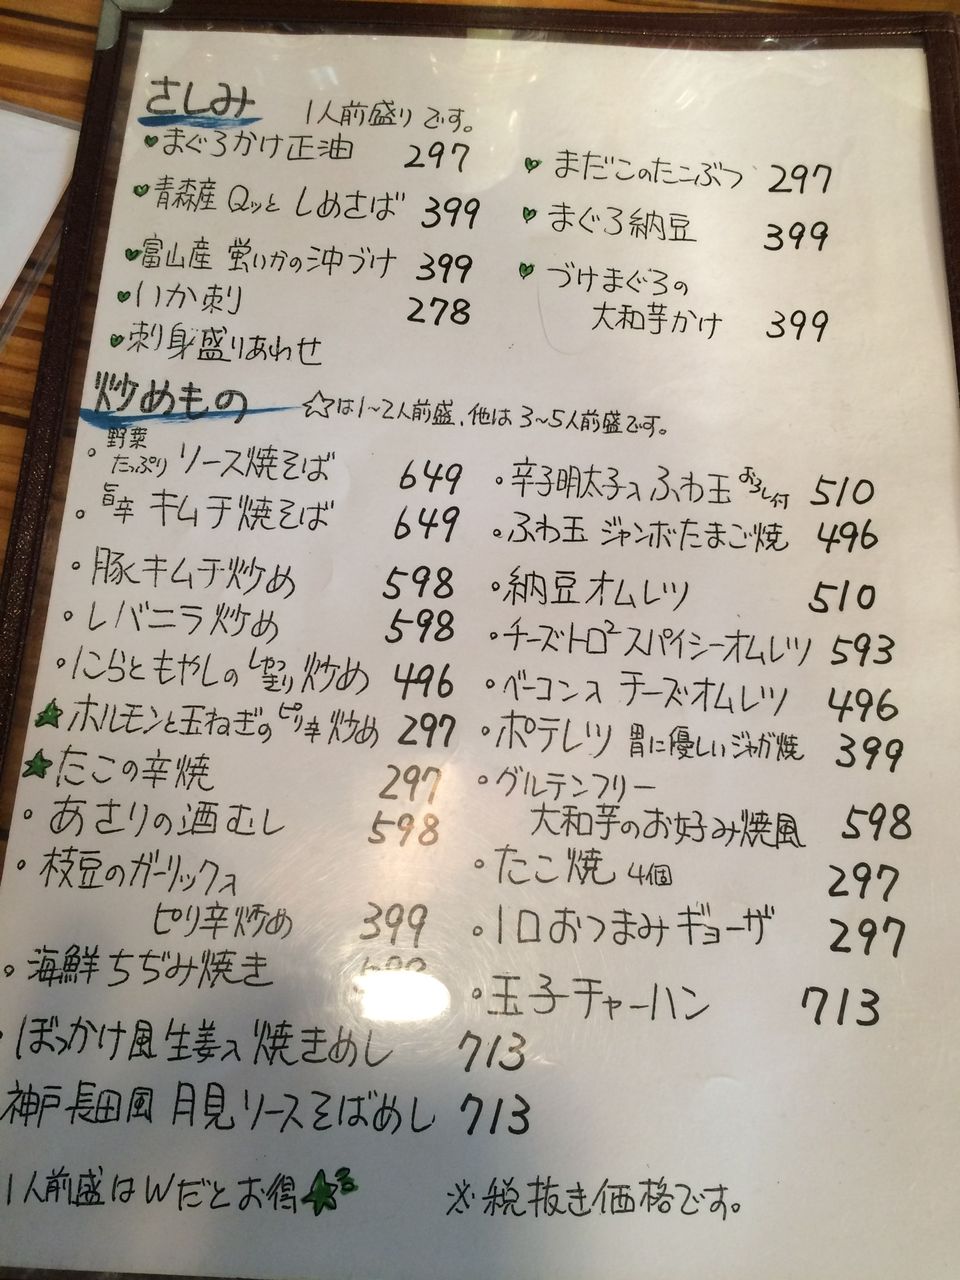 さしみ 1人前盛りです。
まぐろかけ正油 297
青森産 Qッと しめさば 399
富山産 蛍いかの沖づけ 399
いか刺 278
刺身盛りあわせ
まだこのたこぶつ 297
まぐろ納豆 399
づけまぐろの
大和芋かけ 399
炒めもの ☆は1~2人前盛、他は3~5人前盛です。
野菜たっぷり ソース焼そば 649
旨辛 キムチ焼そば 649
豚キムチ炒め 598
レバニラ炒め 598
にらともやしの 炒め 496
★ホルモンと玉ねぎのピリ辛炒め 297
★たこの辛焼 297
あさりの酒むし 598
枝豆のガーリック入
ピリ辛炒め 399
海鮮ちぢみ焼き
ぼっかけ風 生姜入 焼きめし 713
神戸長田風 月見ソースそばめし 713
辛子明太子入 ふわ玉 おろし付 510
ふわ玉 ジャンボたまご焼 496
納豆オムレツ 510
チーズトロ² スパイシーオムレツ 593
ベーコン入 チーズオムレツ 496
ポテレツ 胃に優しいジャガ焼 399
グルテンフリー
大和芋のお好み焼風 598
たこ焼 4個 297
1口おつまみギョーザ 297
玉子チャーハン 713
1人前盛はWだとお得★
※税抜き価格です。